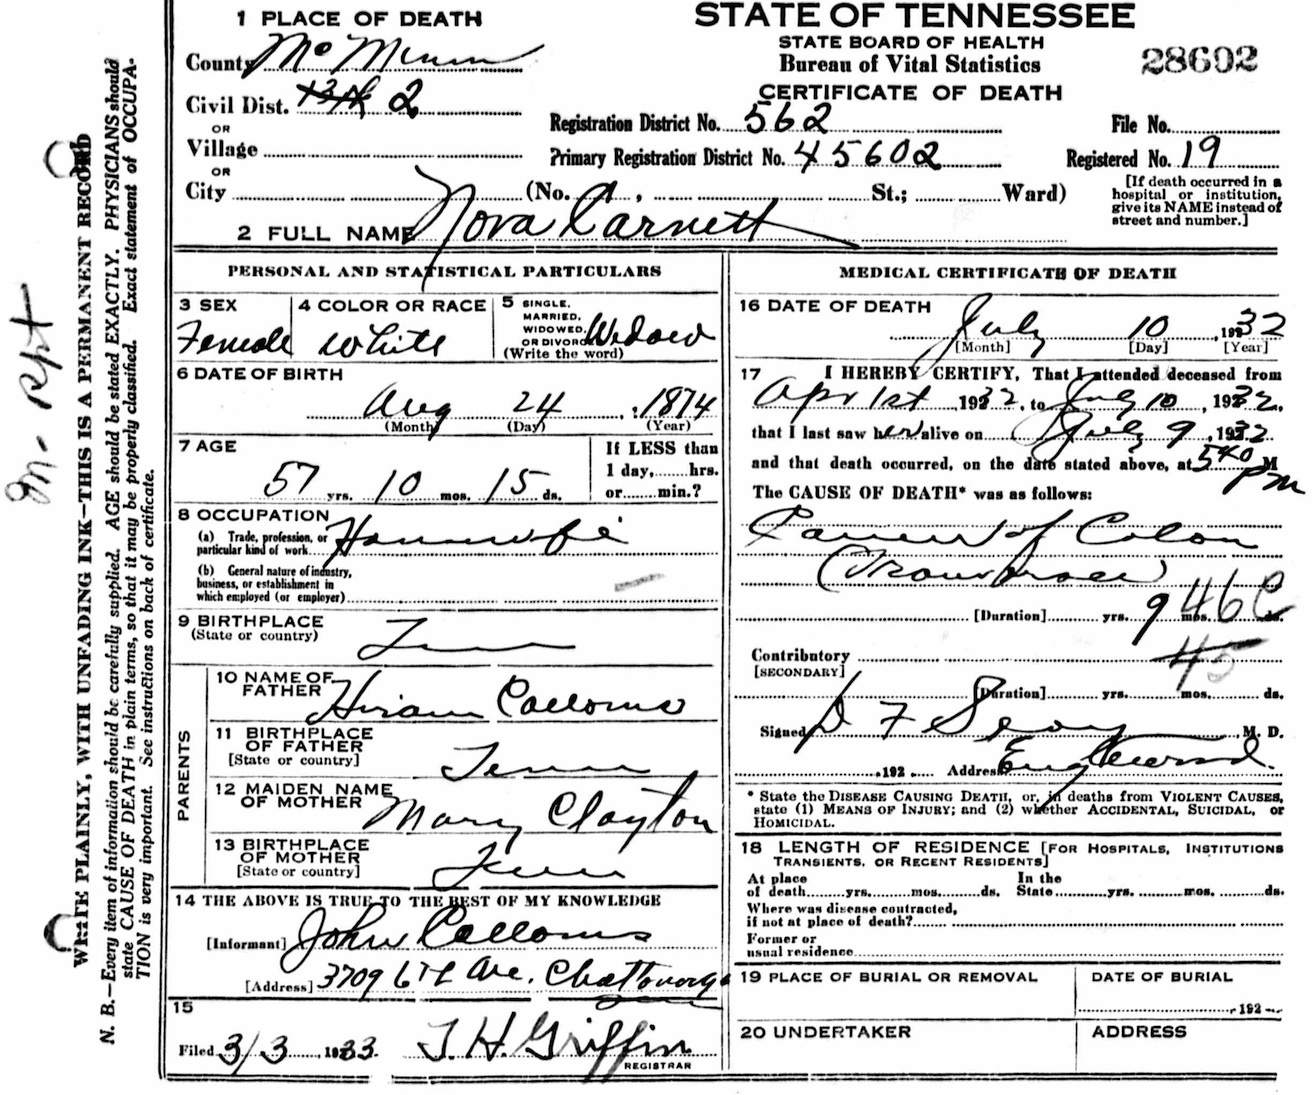 1 PLACE OF DEATH
County McMinn
Civil Dist. 13th 2
OR
Village
OR
City (No. , St.; Ward)
STATE OF TENNESSEE
STATE BOARD OF HEALTH
Bureau of Vital Statistics
CERTIFICATE OF DEATH
28602
Registration District No. 562
File No.
Primary Registration District No. 45602
Registered No. 19
[If death occurred in a
hospital or institution,
give its NAME instead of
street and number.]
2 FULL NAME Nora Carnett
PERSONAL AND STATISTICAL PARTICULARS
3 SEX
Female
4 COLOR OR RACE
White
5 SINGLE,
MARRIED,
WIDOWED,
OR DIVORCED
(Write the word)
Widow
6 DATE OF BIRTH
Aug 24, 1874
(Month) (Day) (Year)
7 AGE
57 yrs. 10 mos. 15 ds.
If LESS than
1 day, hrs.
or min.?
8 OCCUPATION
(a) Trade, profession, or
particular kind of work Housewife
(b) General nature of industry,
business, or establishment in
which employed (or employer)
9 BIRTHPLACE
(State or country)
Tenn
PARENTS
10 NAME OF
FATHER Hiram Calloms
11 BIRTHPLACE
OF FATHER
[State or country]
Tenn
12 MAIDEN NAME
OF MOTHER Mary Clayton
13 BIRTHPLACE
OF MOTHER
[State or country]
Tenn
14 THE ABOVE IS TRUE TO THE BEST OF MY KNOWLEDGE
[Informant] John Calloms
[Address] 3709 6th Ave. Chattanooga
Tenn
15
Filed 3/3, 1933. T. H. Griffin
REGISTRAR
MEDICAL CERTIFICATE OF DEATH
16 DATE OF DEATH
July 10, 1932
[Month] (Day) [Year]
17 I HEREBY CERTIFY, That I attended deceased from
Apr 1st, 1932, to July 10, 1932,
that I last saw her alive on July 9, 1932
and that death occurred, on the date stated above, at 540 M
pm
The CAUSE OF DEATH* was as follows:
Cancer of Colon
[Duration] yrs. 9 mos. ds.
46C
Contributory
[SECONDARY]
45
[Duration] yrs. mos. ds.
Signed D F M. D.
, 192 Address Englewood.
* State the DISEASE CAUSING DEATH, or, in deaths from VIOLENT CAUSES,
state (1) MEANS OF INJURY; and (2) whether ACCIDENTAL, SUICIDAL, or
HOMICIDAL.
18 LENGTH OF RESIDENCE [FOR HOSPITALS, INSTITUTIONS
TRANSIENTS, OR RECENT RESIDENTS]
At place
of death yrs. mos. ds.
In the
State yrs. mos. ds.
Where was disease contracted,
if not at place of death?
Former or
usual residence
19 PLACE OF BURIAL OR REMOVAL
DATE OF BURIAL
, 192
20 UNDERTAKER
ADDRESS
WRITE PLAINLY, WITH UNFADING INK—THIS IS A PERMANENT RECORD
N. B.—Every item of information should be carefully supplied. AGE should be stated EXACTLY. PHYSICIANS should
state CAUSE OF DEATH in plain terms, so that it may be properly classified. Exact statement of OCCUPA-
TION is very important. See instructions on back of certificate.
m- Rpt